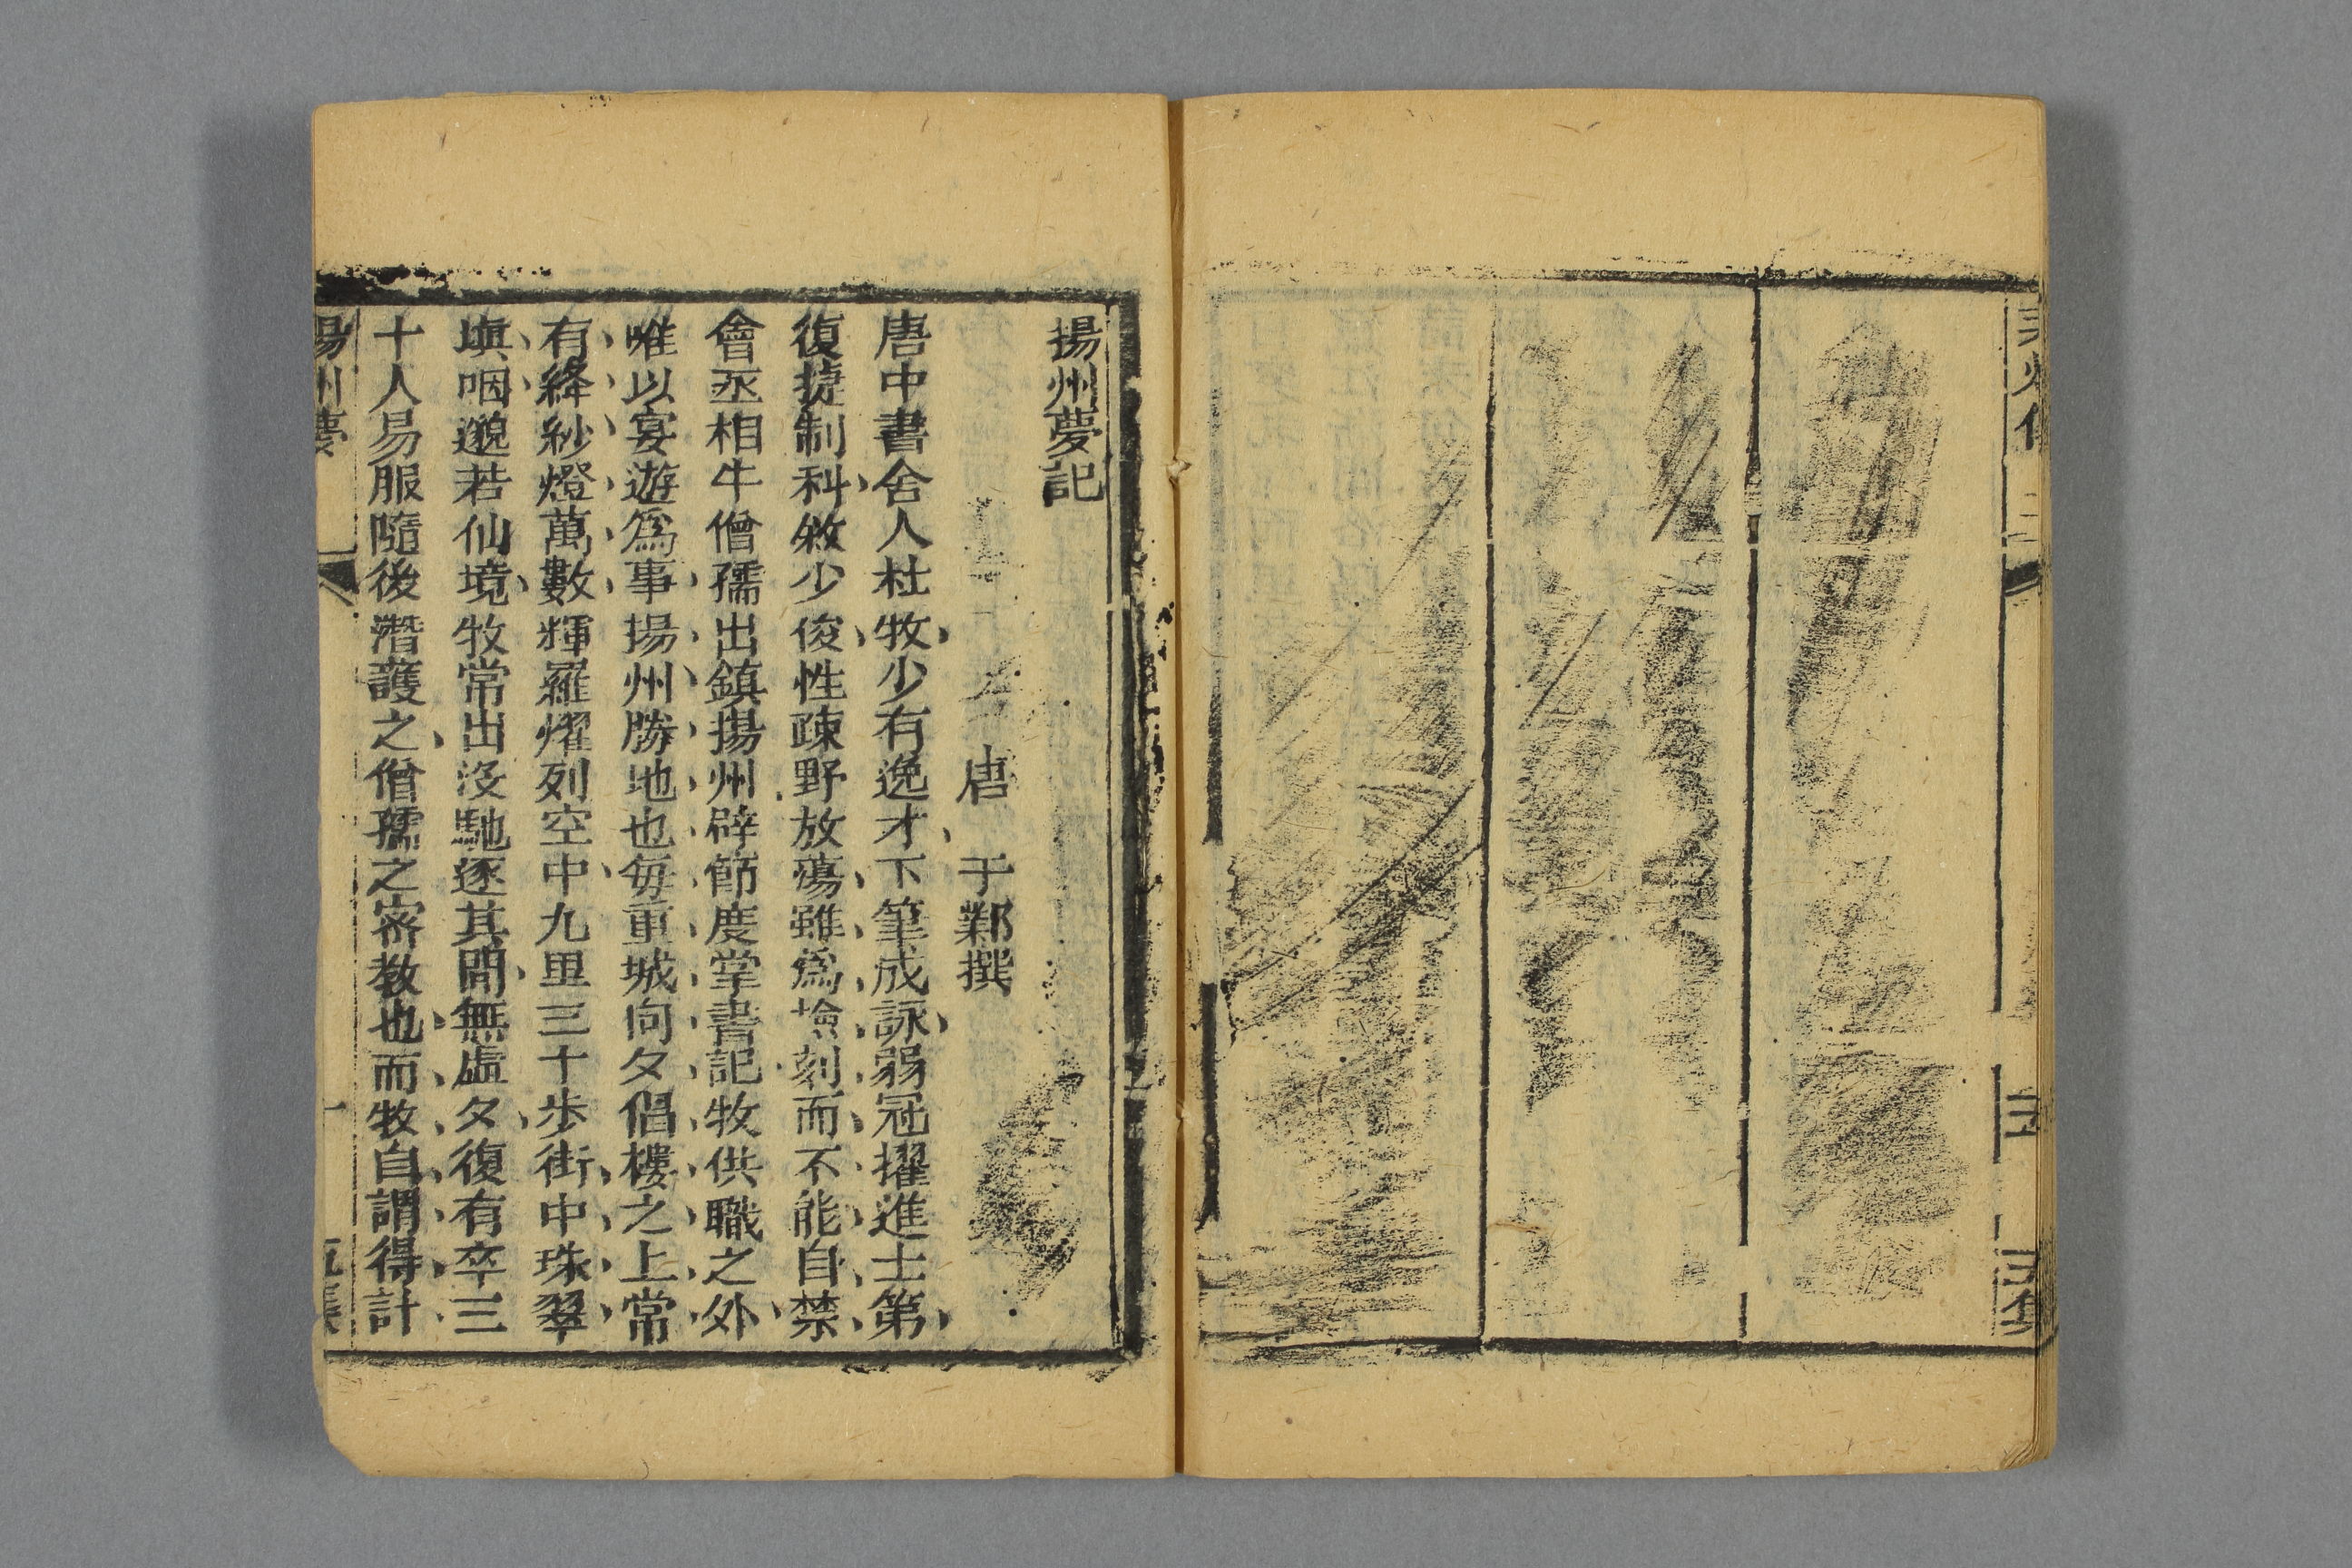 揚州夢記
唐　于鄴撰
唐中書舍人杜牧少有逸才下筆成詠弱冠擢進士第
復捷制科牧少俊性疎野放蕩雖爲撿刻而不能自禁
會丞相牛僧孺出鎮揚州辟節度掌書記牧供職之外
唯以宴遊爲事揚州勝地也每重城向夕倡樓之上常
有絳紗燈萬數輝羅燿列空中九里三十步街中珠翠
塡咽邈若仙境牧常出沒馳逐其間無虛夕復有卒三
十人易服隨後潛護之僧孺之密教也而牧自謂得計
揚州夢
一